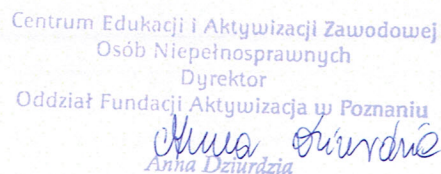 Centrum Edukacji i Aktywizacji Zawodowej
Osób Niepełnosprawnych
Dyrektor
Oddział Fundacji Aktywizacja w Poznaniu
Anna Dziurdzia
Anna Dziurdzia